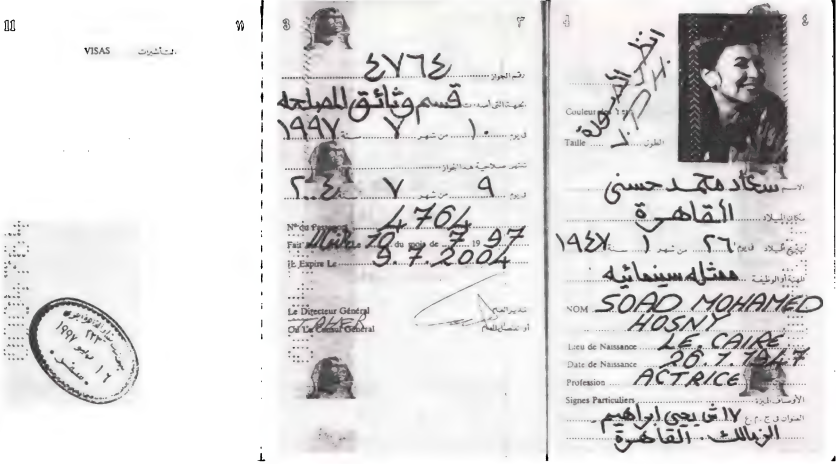 11
VISAS التأشيرات
3 ٣
رقم الجواز ٤٧٦٤
الجهة التى أصدرت قسم وثائق المصلحه
فى يوم ١٠ من شهر ٧ سنة ١٩٩٧
تنتهى صلاحية هذا الجواز
فى يوم ٩ من شهر ٧ سنة ٢٠٠٤
N° du Passeport 4764
Fait Le 10 du mois de 7 19 97
Il Expire Le 9.7.2004
Le Directeur Général المدير العام
Ou Le Consul Général أو القنصل العام
4 ٤
انظر الصفحة
Couleur des Yeux
Taille الطول
الاسم سعاد محمد حسنى
مكان الميلاد القاهرة
تاريخ الميلاد فى يوم ٢٦ من شهر ١ سنة ١٩٤٧
المهنة أو الوظيفة ممثله سينمائيه
NOM SOAD MOHAMED
HOSNY
Lieu de Naissance LE CAIRE
Date de Naissance 26.1.1947
Profession ACTRICE
Signes Particuliers الأوصاف المميزة
العنوان فى ج.م.ع ١٧ ش يحى ابراهيم
الزمالك. القاهرة